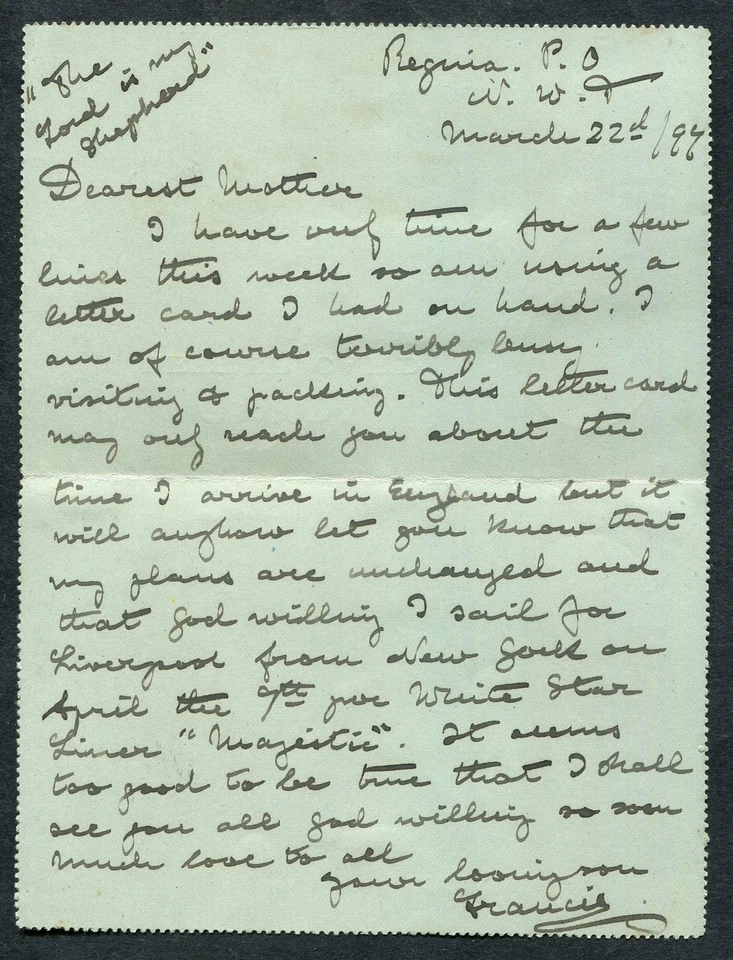 "The
Lord is my
Shepherd"
Regina. P. O
N. W. T
March 22nd /97
Dearest Mother
I have only time for a few
lines this week so am using a
letter card I had on hand. I
am of course terribly busy
visiting & packing. This letter card
may only reach you about the
time I arrive in England but it
will anyhow let you know that
my plans are unchanged and
that God willing I sail for
Liverpool from New York on
April the 7th per White Star
Liner "Majestic". It seems
too good to be true that I shall
see you all God willing so soon
much love to all
your loving son
Francis